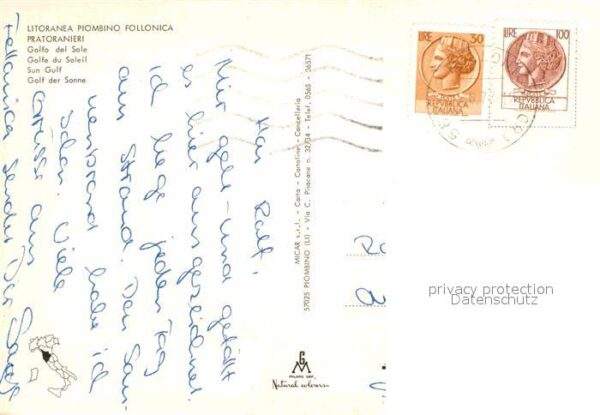 LITORANEA PIOMBINO FOLLONICA
PRATORANIERI
Golfo del Sole
Golfe du Soleil
Sun Gulf
Golf der Sonne
57025 PIOMBINO (LI) - Via C. Pisacane n. 32/34 - Telef. 0565 - 36571
MICAR s.r.l. - Carta - Cartoline - Cancelleria
Ralf,
Mir geht und gefällt
es hier ausgezeichnet.
Ich liege jeden Tag
am Strand. Den Son-
nenbrand habe ich
schon. Viele
Grüsse aus
Follonica sendet Dir
LIRE 50
REPVBBLICA
ITALIANA
LIRE 100
REPVBBLICA
ITALIANA
privacy protection
Datenschutz
GM
MILANO DEP.
Natural colours